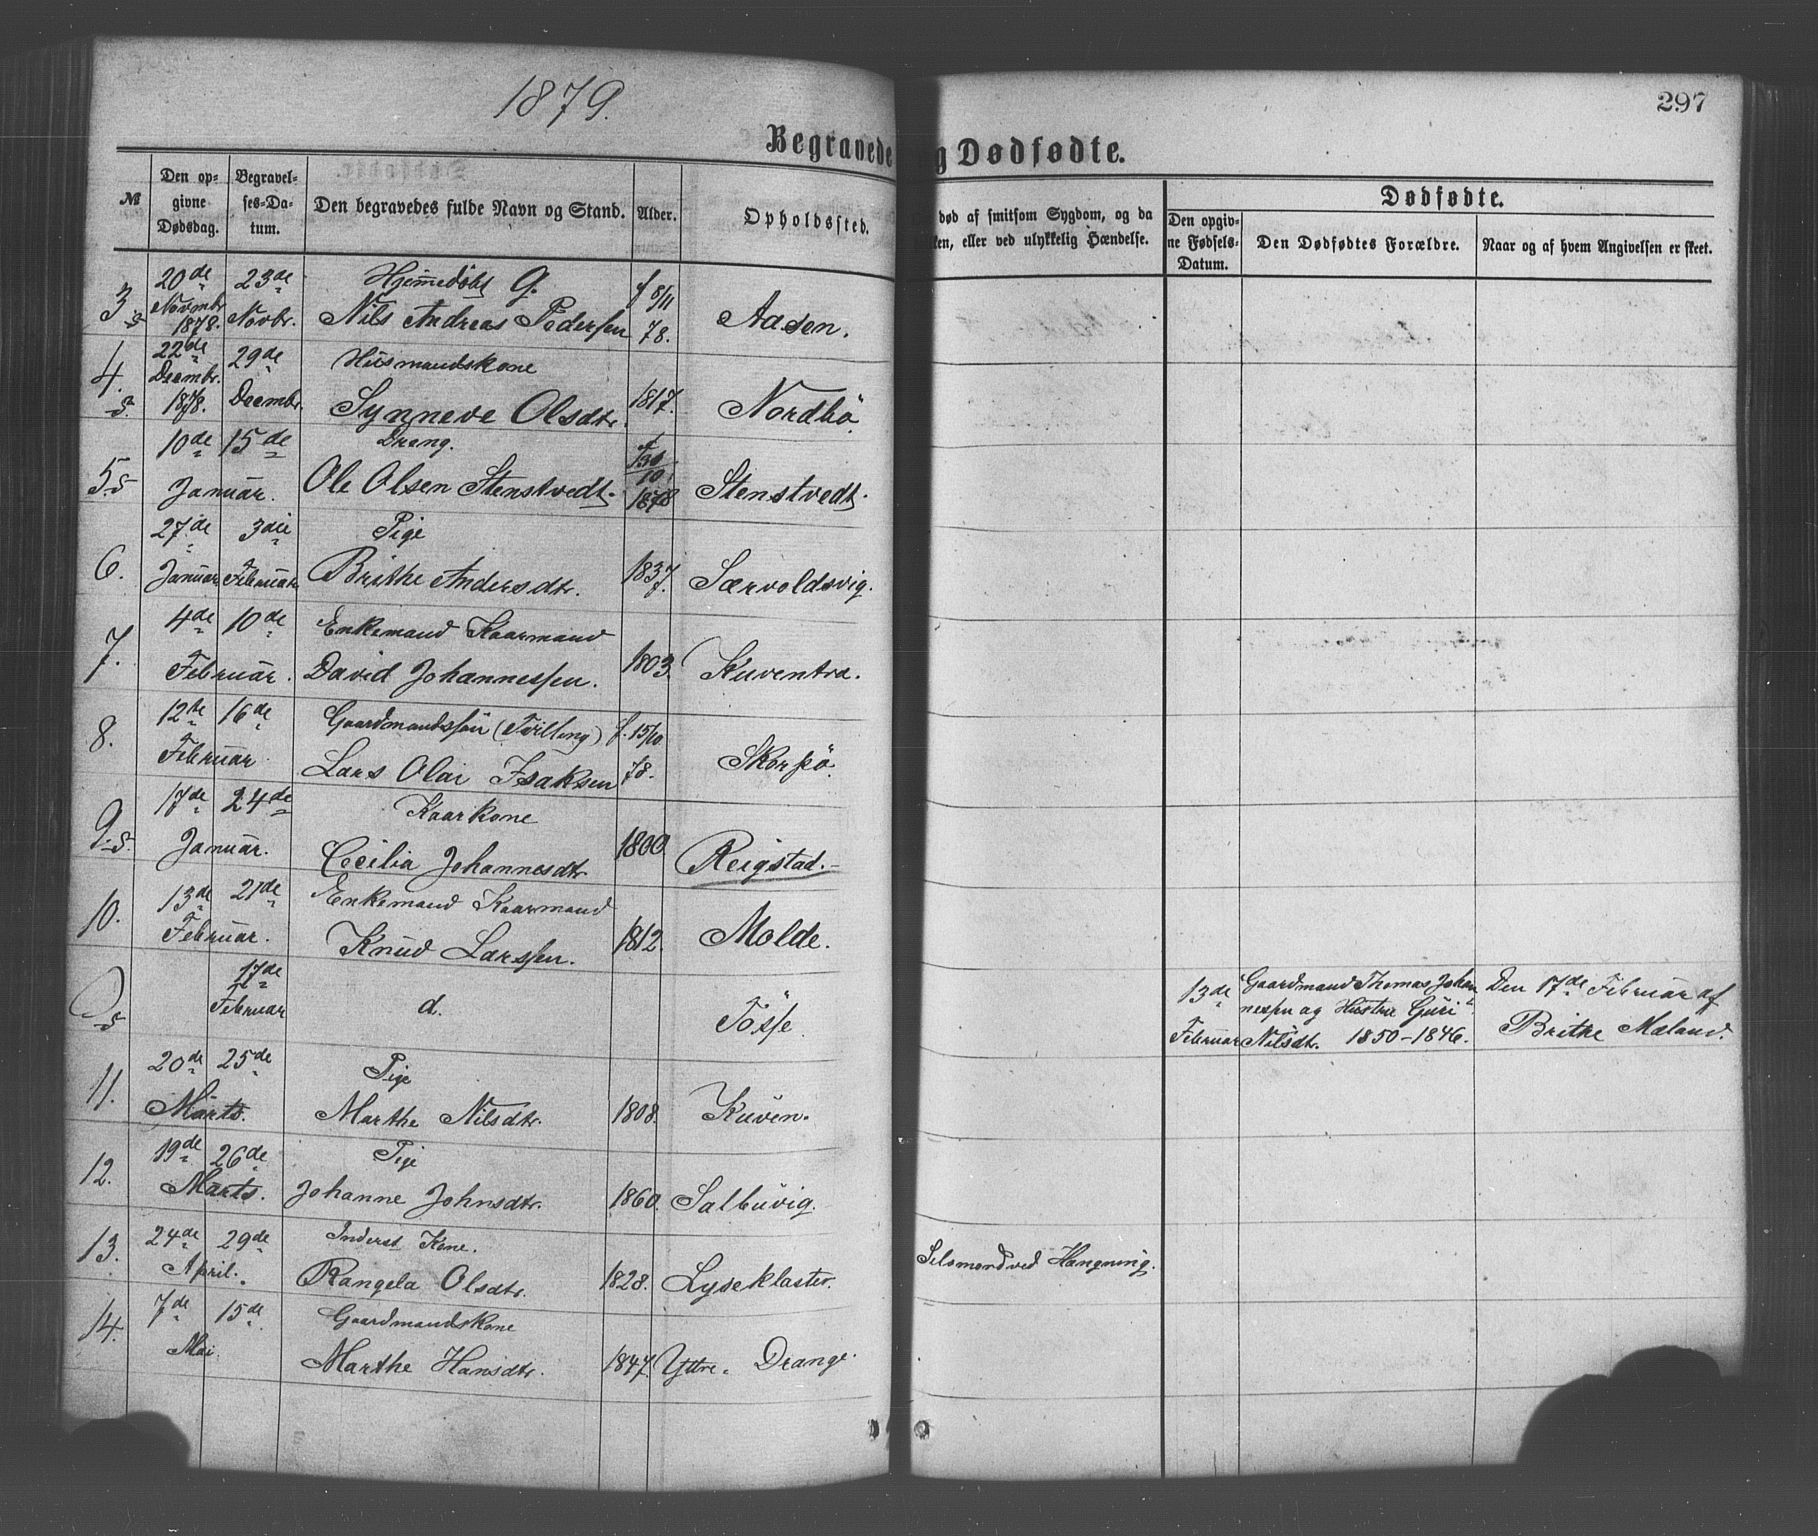 1879.
297
Begravede og Dødfødte.
№
Den opgivne Dødsdag.
Begravelses-Datum.
Den begravedes fulde Navn og Stand.
Alder.
Opholdssted.
død af smitsom Sygdom, og da
ken, eller ved ulykkelig Hændelse.
Dødfødte.
Den opgivne Fødsels-Datum.
Den Dødfødtes Forældre.
Naar og af hvem Angivelsen er skeet.
3 s 20de Novmbr 1878. 23de Novbr. Hjemedöbt G.
Nils Andreas Pedersen f 8/11 78. Aasen.
4. s. 22de Decmbr. 1878. 29de Decmbr. Husmandskone
Synneve Olsdtr. 1817. Nordbö
5 s 10de 15de Dreng.
Januar. Ole Olsen Stenstvedt. f 30/10 1878 Stenstvedt.
6. 27de 3die Pige
Januar Februar Brithe Andersdtr. 1837. Særvoldsvig.
7. 4de 10de Enkemand Kaarmand
Februar. David Johannessen. 1803. Kuventra.
8. 12te 16de Gaardmandssön (Tvilling) f. 15/10
Februar. Lars Olai Isaksen 78. Skorpö.
9. s. 17de 24de Kaarkone
Januar. Cecilia Johannesdtr. 1800. Reigstad.
10. 13de 21de Enkemand Kaarmand
Februar. Knud Larssen. 1812. Molde.
D s 17de Februar d. Tösse.
13de Februar
Gaardmand Thomas Johan
nesen og Hustru Guri
Nilsdt. 1850-1846.
Den 17de Februar af
Brithe Mæland.
11. 20de 25de Pige
Marts. Marthe Nilsdtr. 1808. Kuven.
12. 19de 26de Pige
Marts. Johanne Johnsdtr. 1860. Salbuvig.
13. 24de 29de Inderst Kone.
April. Rangela Olsdtr. 1828. Lyseklaster.
Selsmord ved Hængning.
14. 7de 15de Gaardmandskone
Mai. Marthe Hansdtr. 1847. Yttre Drange.